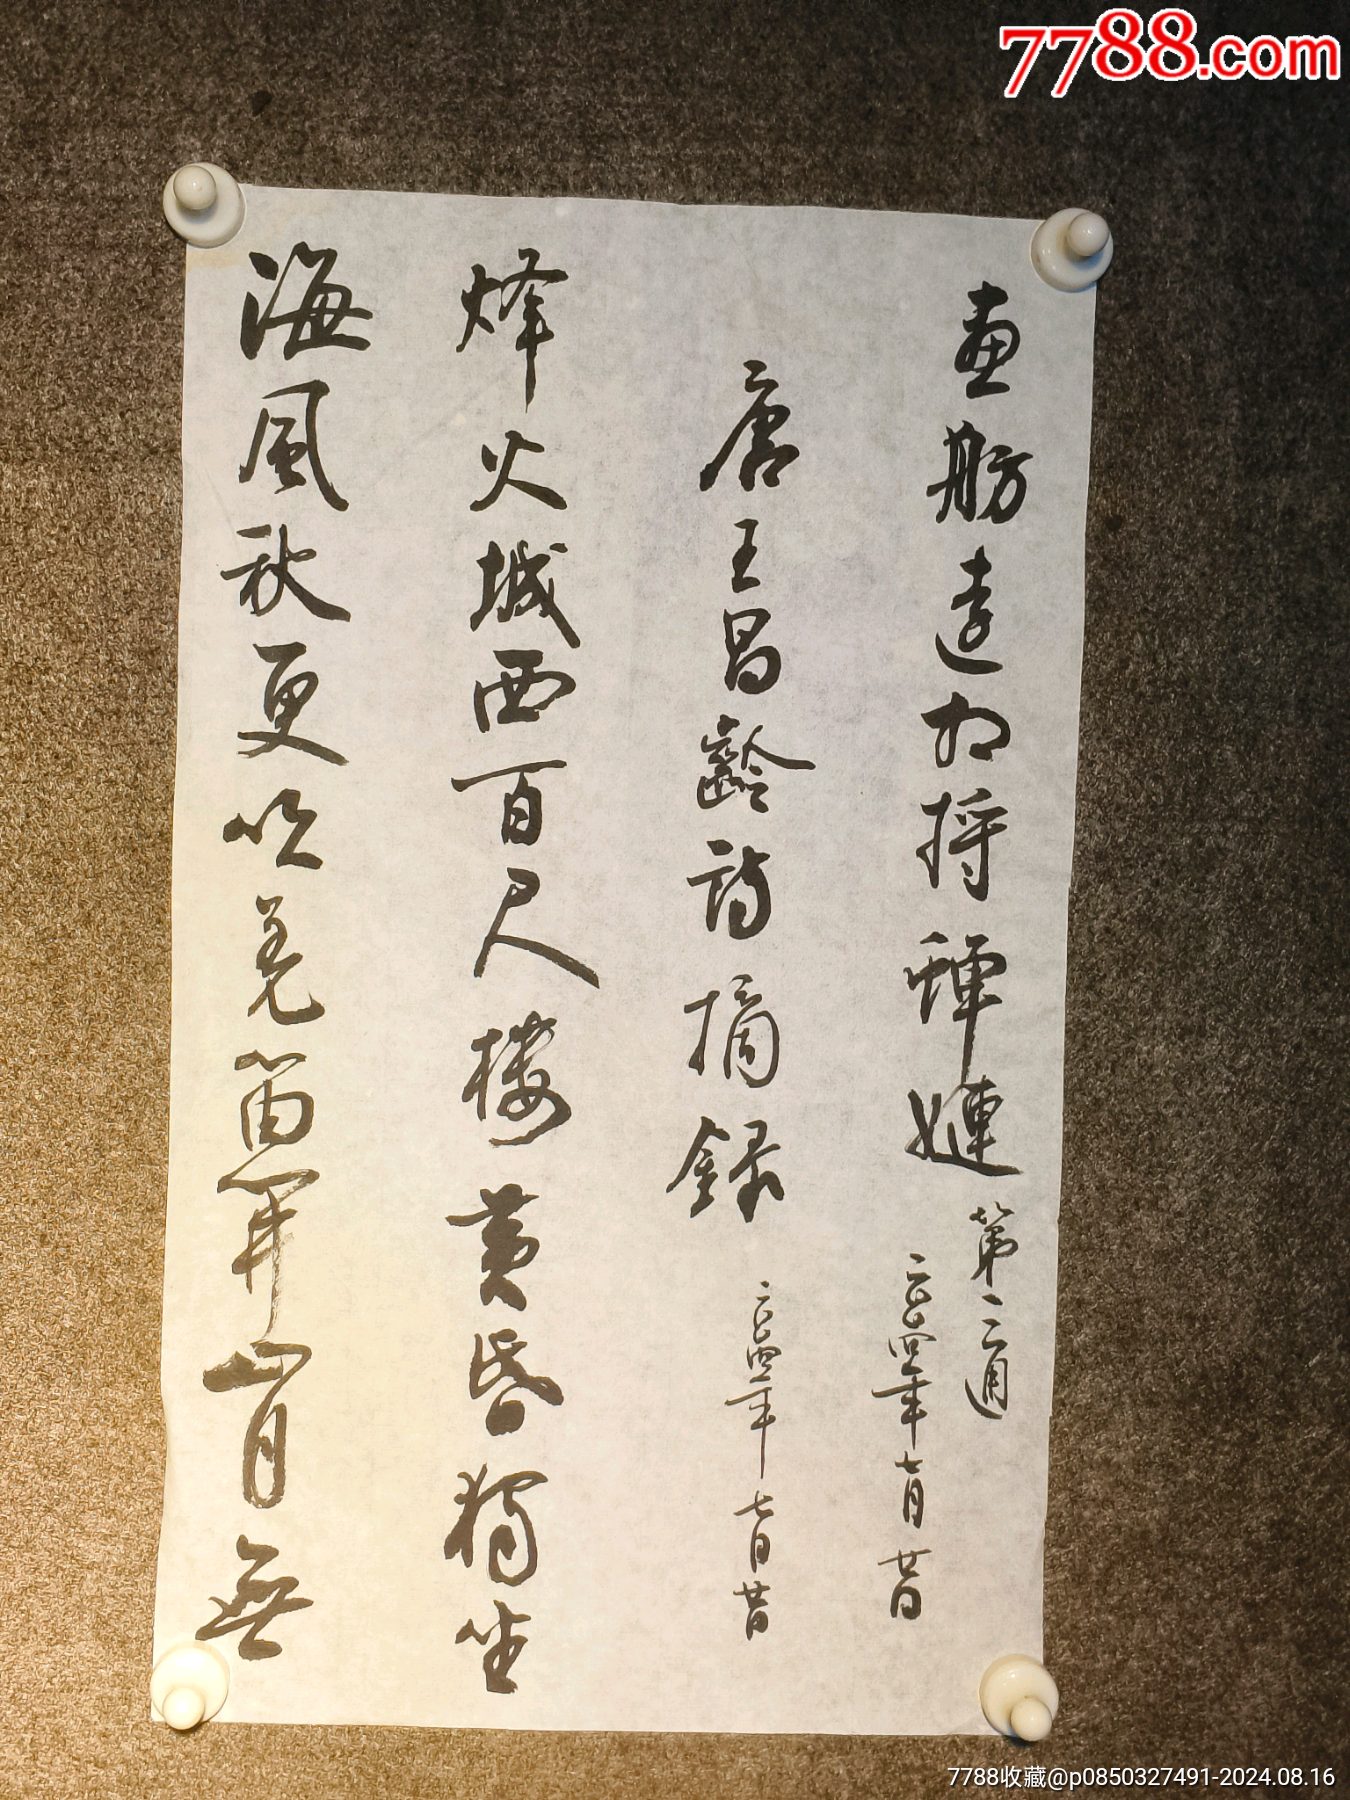 7788.com
畫舫
第二通
二〇二四年七月廿日
唐王昌齡詩摘録
二〇二四年七月廿日
烽火城西百尺樓黄昏獨坐
海風秋更吹羌笛關山月無
7788收藏@p0850327491-2024.08.16